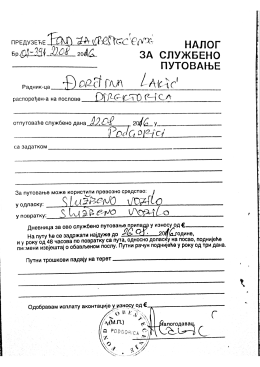 ПРЕДУЗЕЋЕ FOND ZA OBEŠTEĆENJE
Бр. 01-291 22.08 2016
НАЛОГ
ЗА СЛУЖБЕНО
ПУТОВАЊЕ
Радник-ца ĐORĐINA LAKIĆ
распоређен-а на послова DIREKTORICA
отпутоваће службено дана 22.08 2016 у
PODGORICI
са задатком
За путовање може користити превозно средство:
у одласку: SLUŽBENO VOZILO
у повратку: SLUŽBENO VOZILO
Дневница за ово службено путовање припада у износу од €
На путу ће се задржати најдуже до 2016 године,
и у року од 48 часова по повратку са пута, односно доласку на посао, поднијеће
ми писмени извјештај о обављеном послу. Путни рачун поднијеће у року од три дана.
Путни трошкови падају на терет
Одобравам исплату аконтације у износу од €
(М.П.)
Налогодавац,
PODGORICA